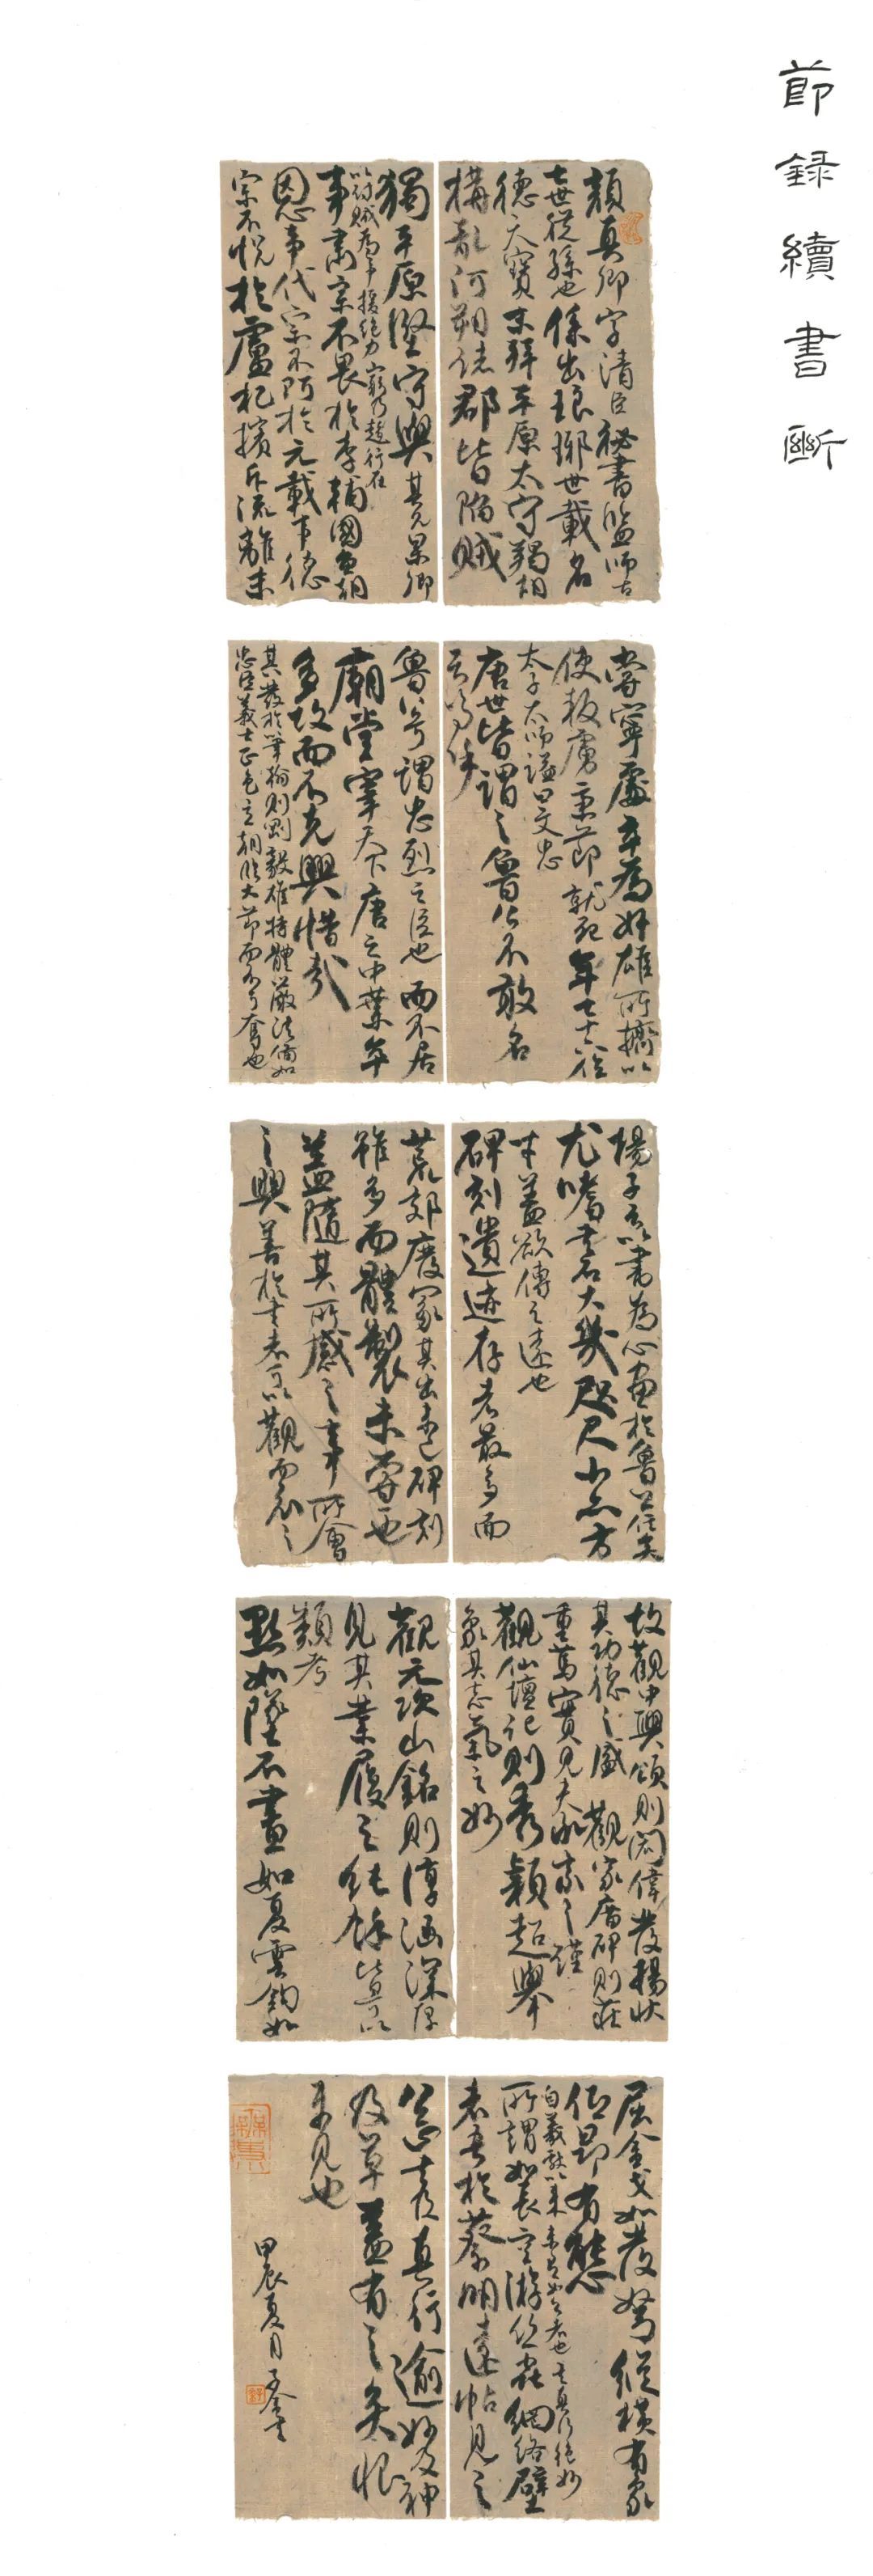 節錄續書斷
顏真卿字清臣秘書監師古
世從孫也係出琅琊世載名
德天寶末拜平原太守羯胡
構亂河朔諸郡皆陷賊
獨平原堅守與其兄杲卿
以討賊為事援絕力窮乃趨行在
事肅宗不畏於李輔國
恩事代宗不阿於元載事德
宗不悅於盧杞擯斥流離未
嘗寧處卒為奸雄所擠以
使叛虜秉節就死年七十六
太子太師謚曰文忠
唐世皆謂之魯公不敢名
魯公可謂忠烈之臣也而不居
廟堂宰天下唐之中葉卒
多故而不克興惜哉
其發於筆翰則剛毅雄特體嚴法備如
忠臣義士正色立朝臨大節而不可奪也
揚子云以書為心畫於魯公信矣
尤嗜書石大幾咫尺小亦方
寸蓋欲傳之遠也
碑刻遺迹存者最多而
荒郊廢冢其出未已碑刻
雖多而體製未嘗一也
蓋隨其所感之事所會
之興善於書者可以觀而知之
故觀中興頌則閎偉發揚狀
其功德之盛觀家廟碑則莊
重篤實見夫承家之謹
觀仙壇記則秀穎超舉
象其志氣之妙
觀元次山銘則淳涵深厚
見其業履之純餘皆可以
類考
點如墜石畫如夏雲鉤如
屈金戈如發弩縱橫有象
低昂有態
自羲獻以來未有如公者也其真行絕妙
所謂如長空游絲蟲網絡壁
者吾於蔡明遠帖見之
公正書及真行逾妙及神
及草蓋有之矣恨
未見也
甲辰夏月